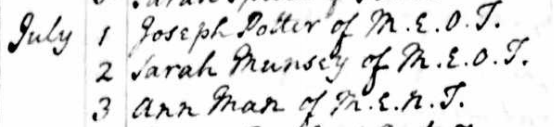 July 1 Joseph Potter of M.E.O.T.
2 Sarah Munsey of M.E.O.T.
3 Ann Man of M.E.N.T.